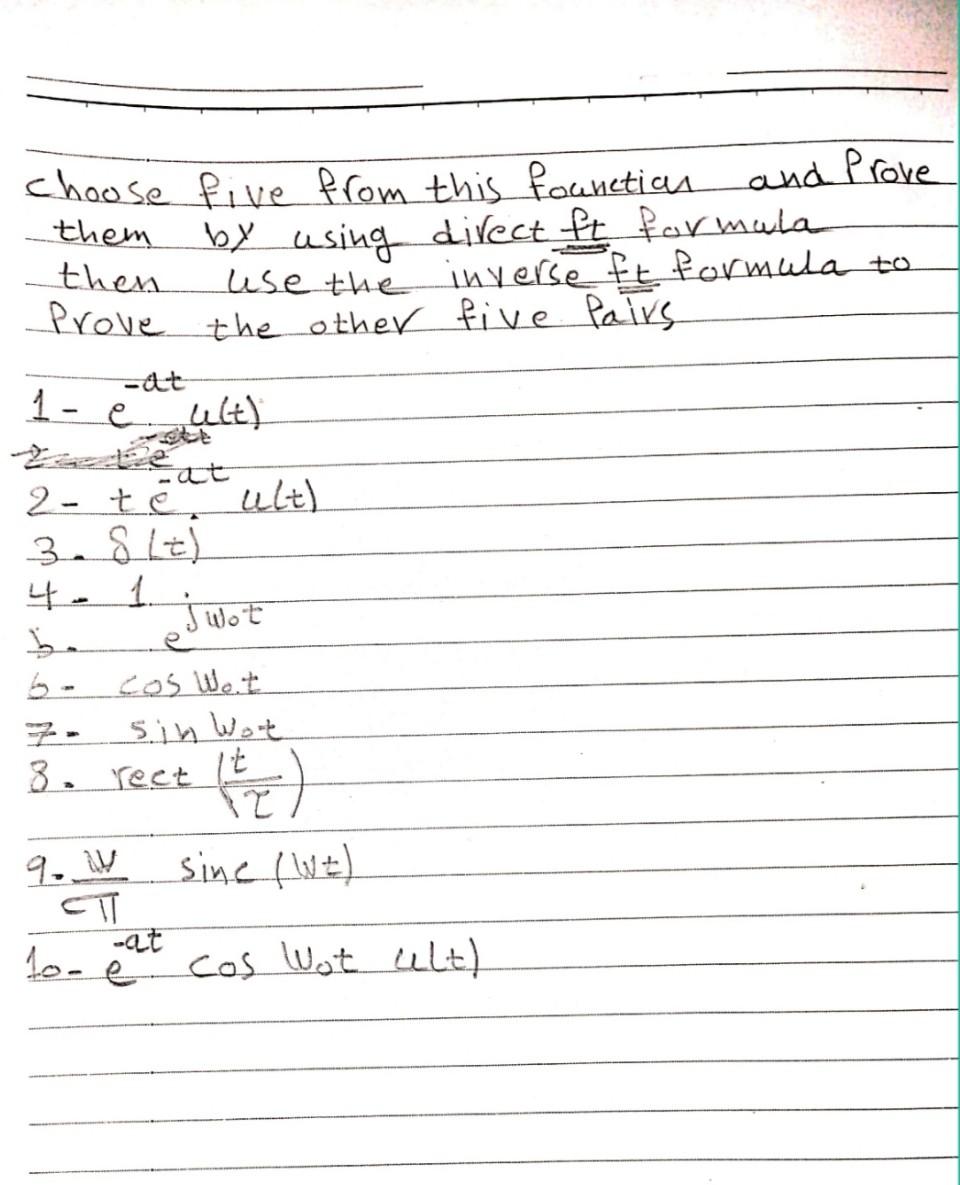 choose five from this founction and Prove
them by using direct ft formula
then use the inverse ft formula to
Prove the other five Pairs
1- e^-at u(t)
2- t e^-at u(t)
3- δ(t)
4- 1
5- e^jw₀t
6- cos W₀t
7- sin W₀t
8- rect (t/τ)
9- W/π sinc (Wt)
10- e^-at cos W₀t u(t)